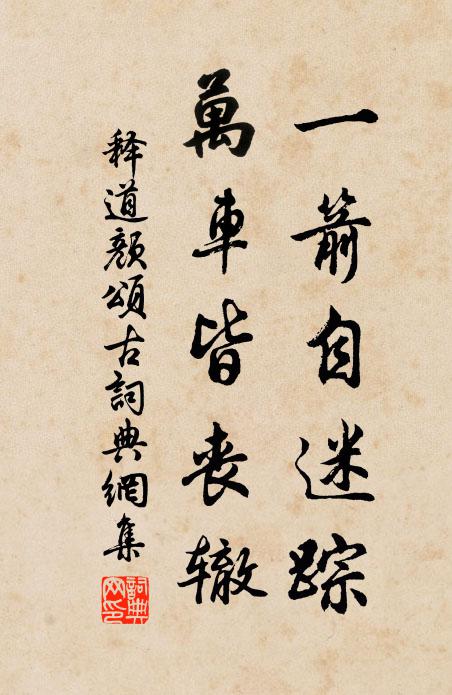 一箭自迷踪
萬車皆丧辙
释道颜頌古詞典網集
詞典网印